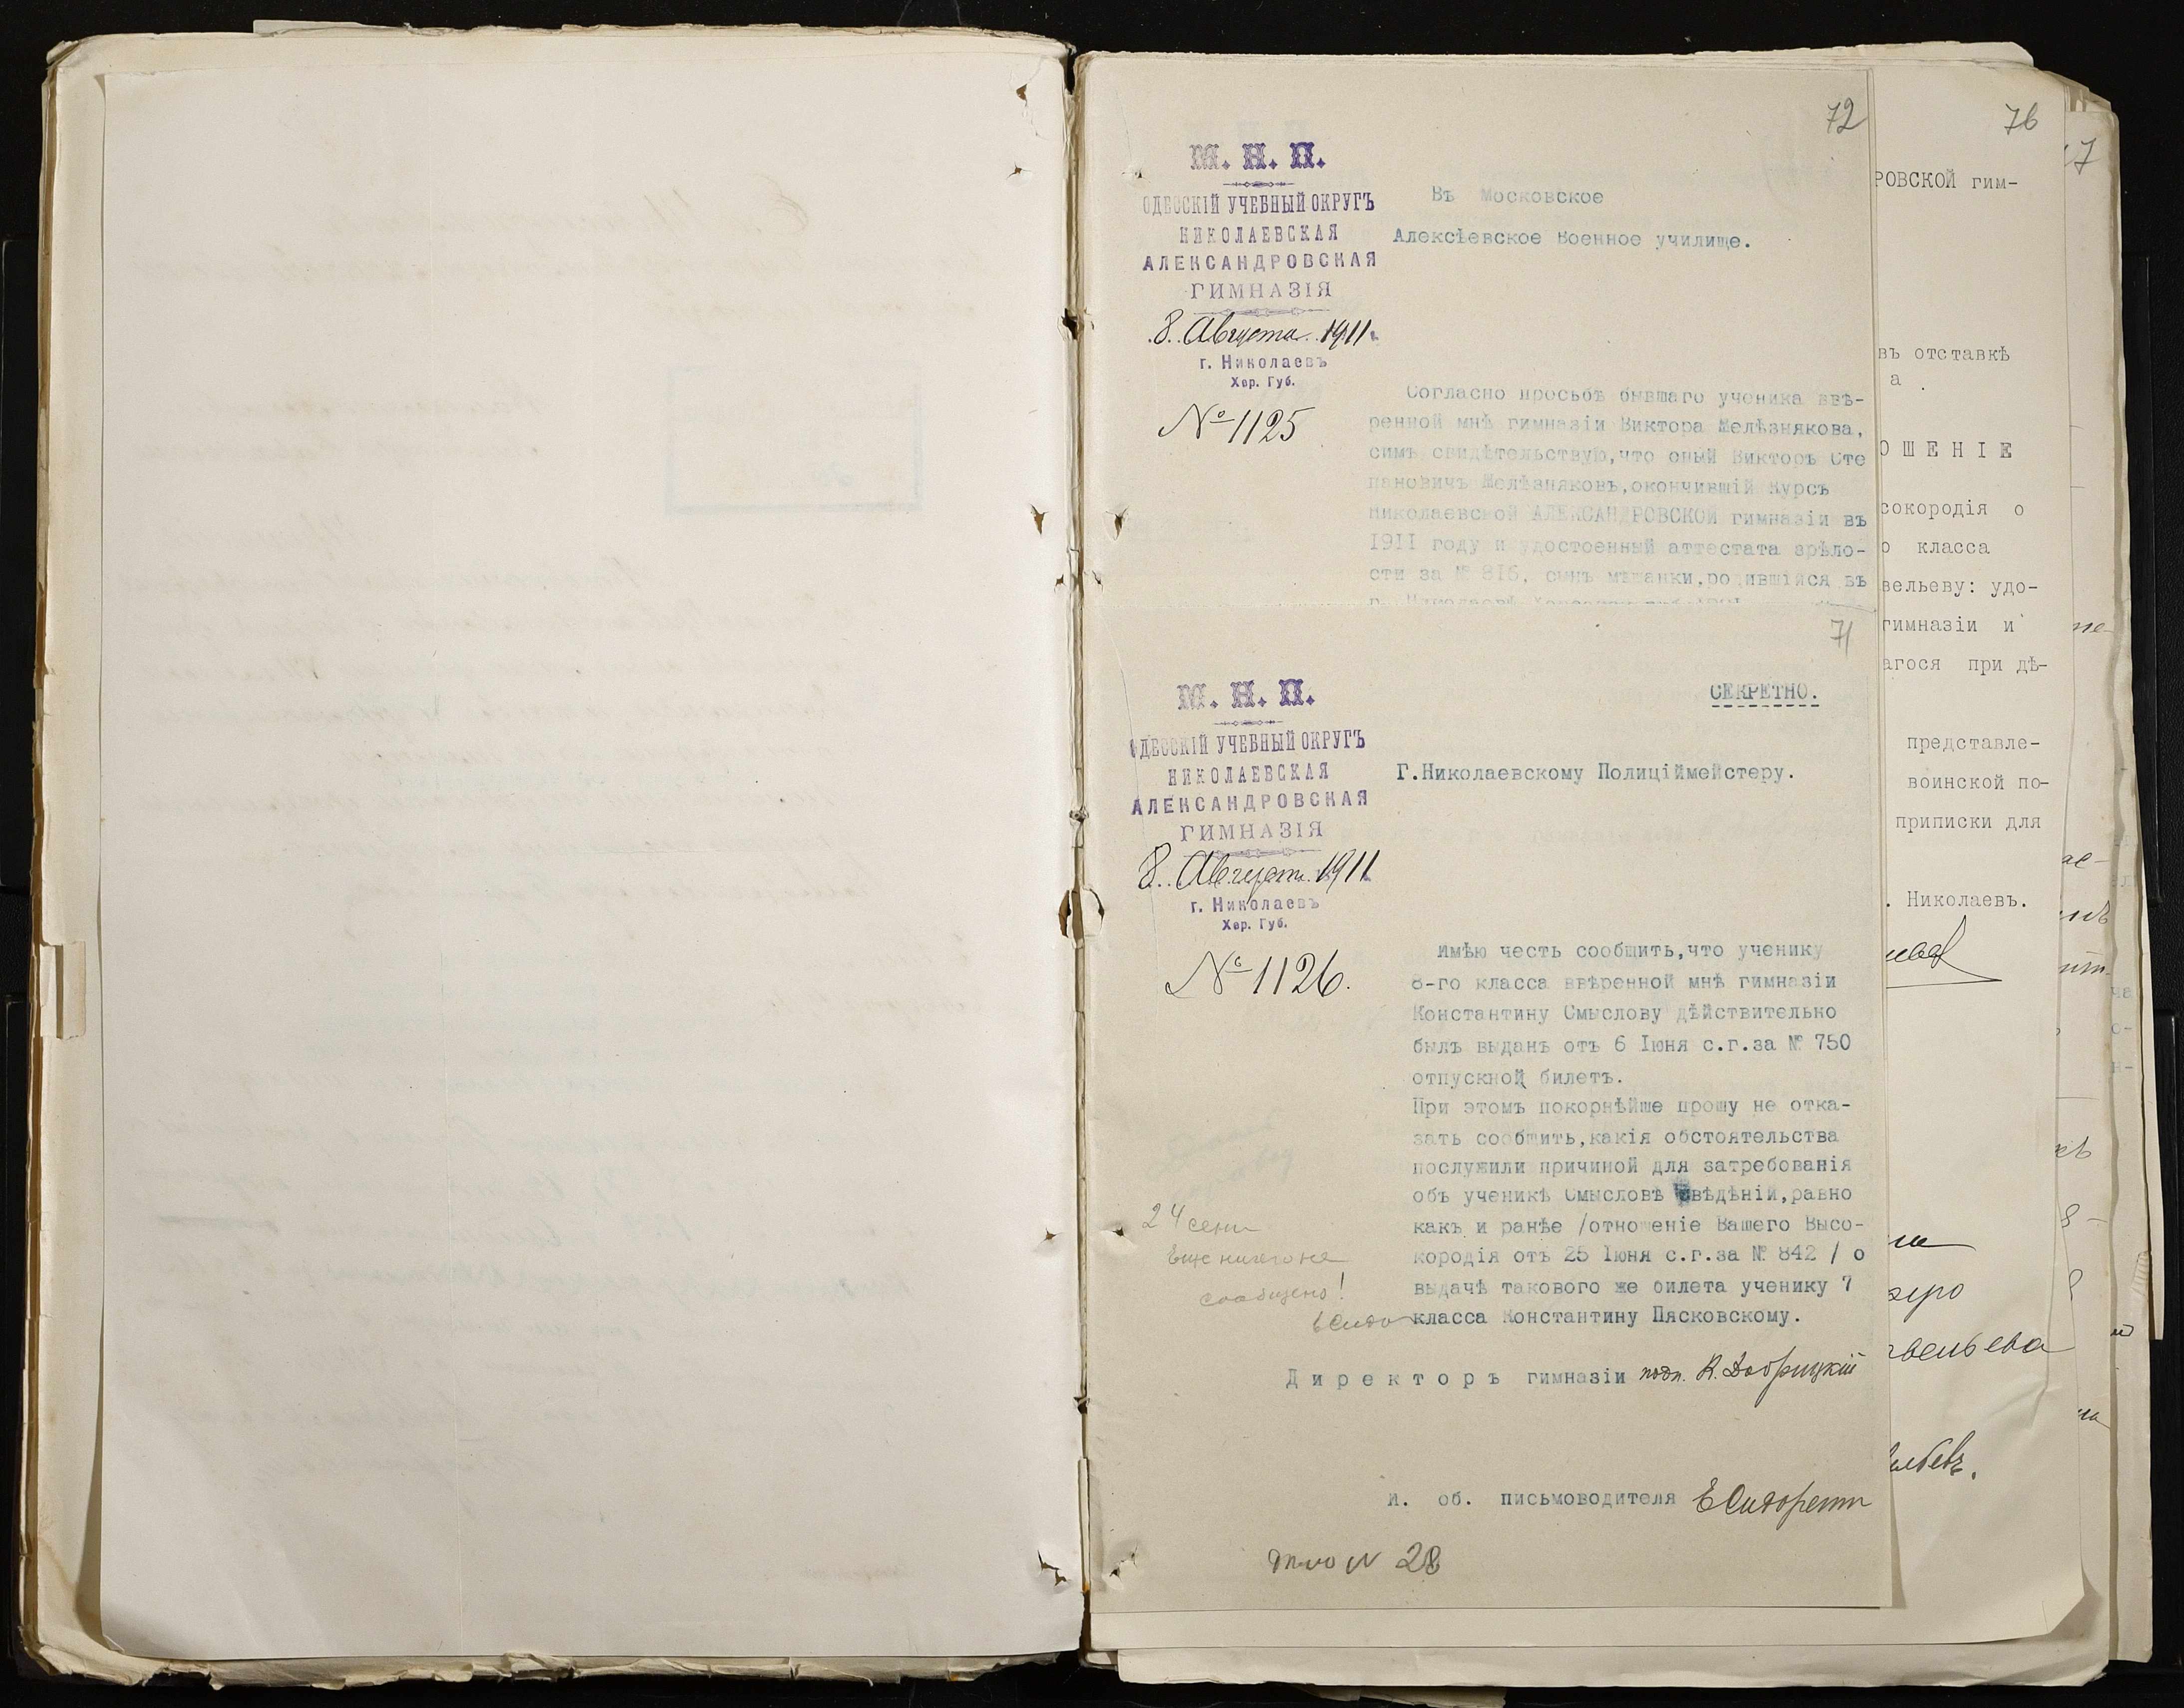 72
М. Н. П.
ОДЕССКІЙ УЧЕБНЫЙ ОКРУГЪ
НИКОЛАЕВСКАЯ
АЛЕКСАНДРОВСКАЯ
ГИМНАЗІЯ
8. Августа. 1911
г. Николаевъ
Хер. Губ.
№ 1125
Въ Московское
Алексѣевское Военное училище.
Согласно просьбѣ бывшаго ученика ввѣ-
ренной мнѣ гимназіи Виктора Желѣзнякова,
симъ свидѣтельствую,что оный Викторъ Сте
пановичъ Желѣзняковъ,окончившій курсъ
Николаевской АЛЕКСАНДРОВСКОЙ гимназіи въ
1911 году и удостоенный аттестата зрѣло-
сти за № 816, сынъ мѣщанки,родившійся въ
71
М. Н. П.
ОДЕССКІЙ УЧЕБНЫЙ ОКРУГЪ
НИКОЛАЕВСКАЯ
АЛЕКСАНДРОВСКАЯ
ГИМНАЗІЯ
8. Августа. 1911
г. Николаевъ
Хер. Губ.
№ 1126.
СЕКРЕТНО.
Г.Николаевскому Полиціймейстеру.
Имѣю честь сообщить,что ученику
8-го класса ввѣренной мнѣ гимназіи
Константину Смыслову дѣйствительно
былъ выданъ отъ 6 Іюня с.г.за № 750
отпускной билетъ.
При этомъ покорнѣйше прошу не отка-
зать сообщить,какія обстоятельства
послужили причиной для затребованія
объ ученикѣ Смысловѣ свѣдѣній,равно
какъ и ранѣе /отношеніе Вашего Высо-
кородія отъ 25 Іюня с.г.за № 842 / о
выдачѣ такового же билета ученику 7
класса Константину Пясковскому.
24 сент
Еще ничего не
сообщено!
Директоръ гимназіи подп. К. Добрицкій
И. об. письмоводителя ЕСидоренко
28
76
РОВСКОЙ гим-
въ отставкѣ
а.
ОШЕНІЕ
сокородія о
о класса
вельеву: удо-
гимназіи и
агося при дѣ-
представле-
воинской по-
приписки для
. Николаевъ.
7